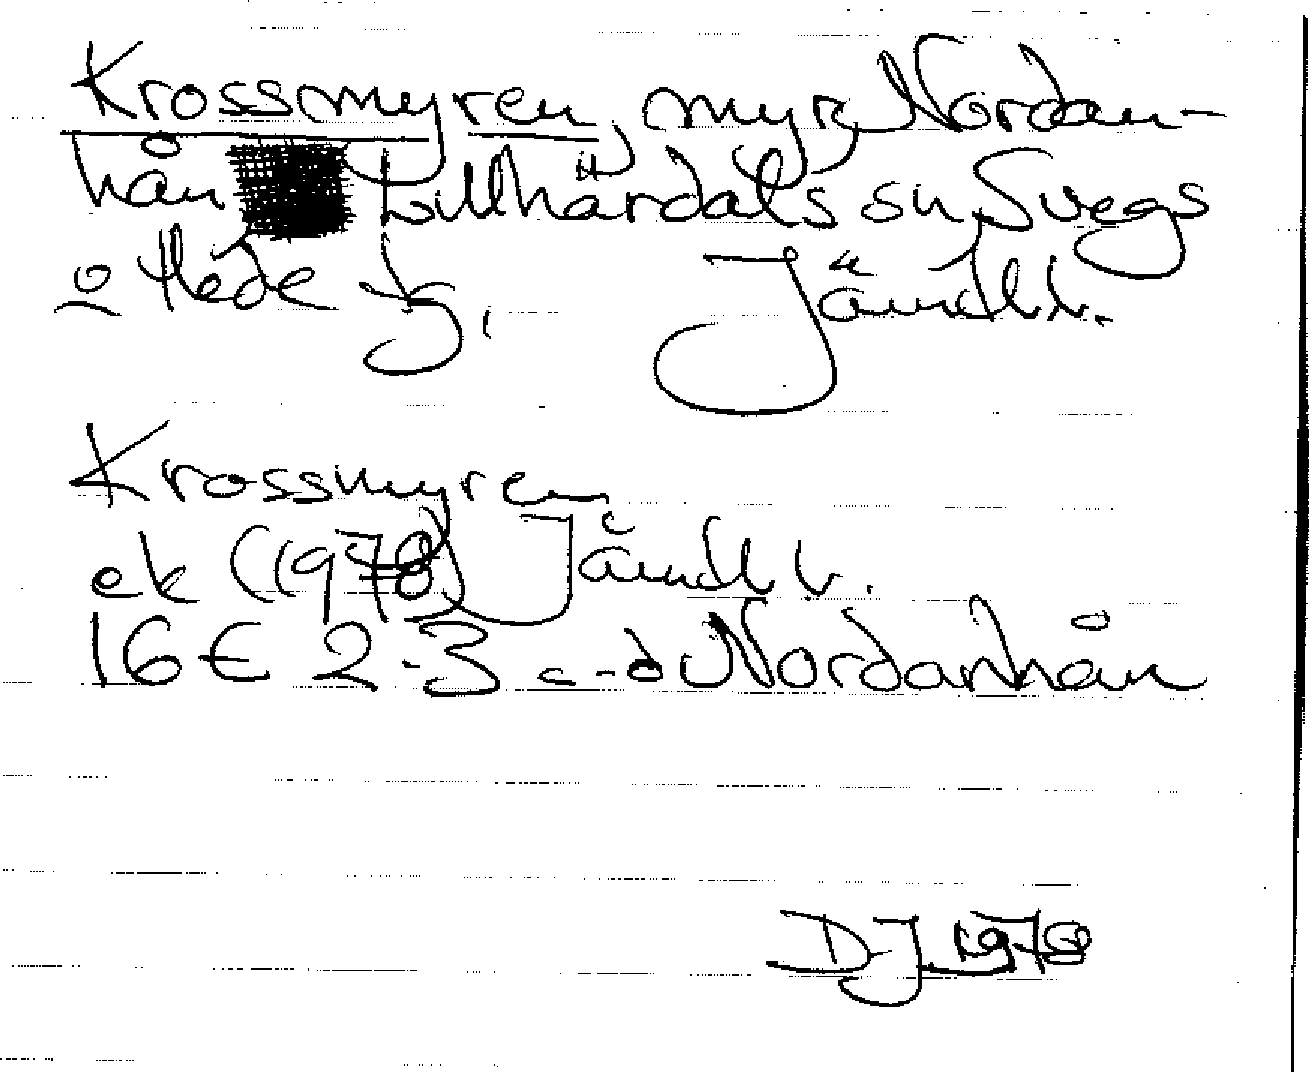 Krossmyren, myr, Nordan-
hån Lillhärdals sn Svegs
o Hede tg, Jämtl l.
Krossmyren
ek (1978) Jämtl l.
16E 2-3 c-d Nordanhån
DJ 1978